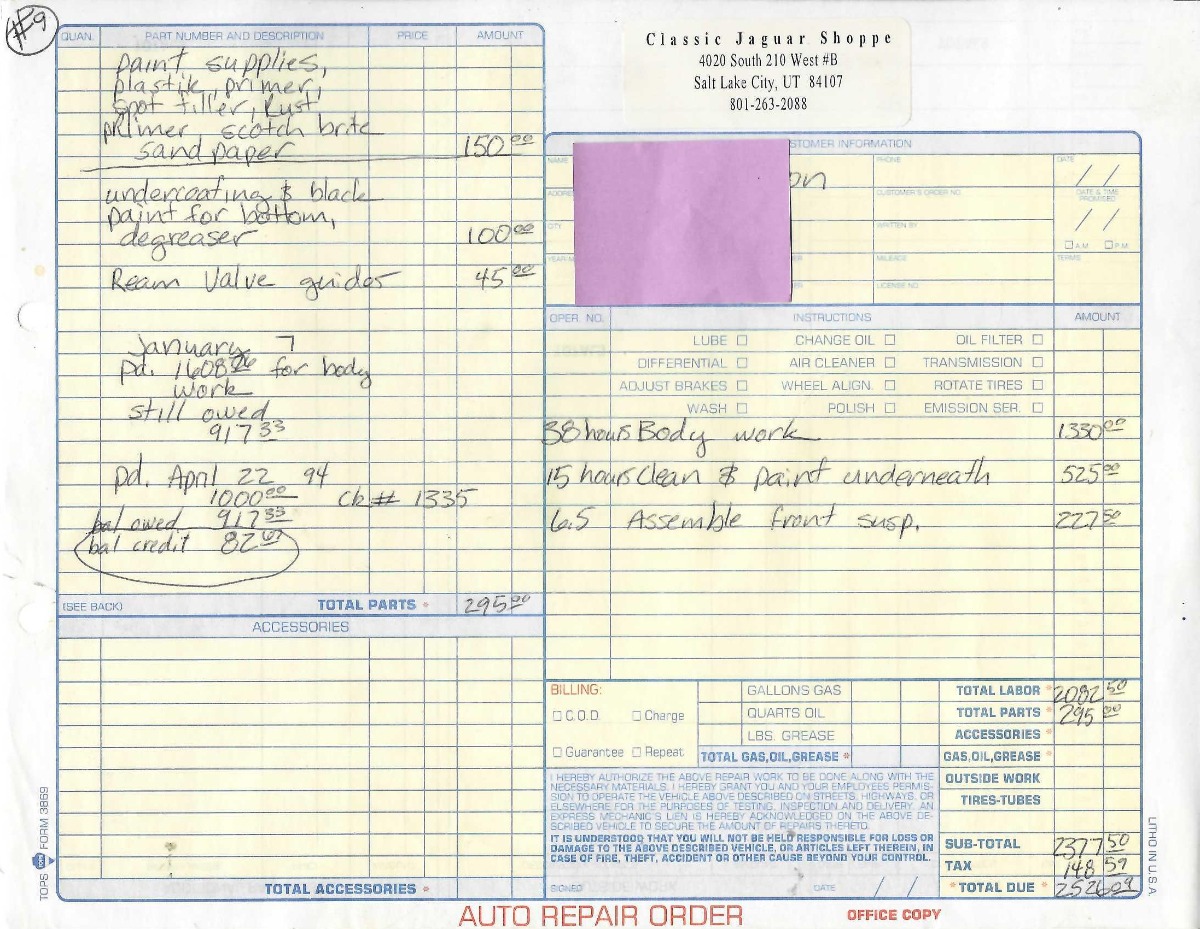 #9
Classic Jaguar Shoppe
4020 South 210 West #B
Salt Lake City, UT 84107
801-263-2088
QUAN. PART NUMBER AND DESCRIPTION PRICE AMOUNT
paint supplies,
plastik, primer,
spot filler, Rust
primer, scotch brite
sand paper 150.00
undercoating & black
paint for bottom,
degreaser 100.00
Ream Valve guides 45.00
January 7
Pd. 1608.76 for body
work
still owed
917.33
pd. April 22 94
1000.00 ck# 1335
bal owed 917.33
bal credit 82.67
(SEE BACK) TOTAL PARTS 295.00
ACCESSORIES
TOTAL ACCESSORIES
STOMER INFORMATION
NAME on PHONE DATE
/ /
ADDRE CUSTOMER'S ORDER NO. DATE & TIME
PROMISED
/ /
CITY WRITTEN BY
☐ A.M. ☐ P.M.
YEAR/M MILEAGE TERMS
LICENSE NO.
OPER. NO. INSTRUCTIONS AMOUNT
LUBE ☐ CHANGE OIL ☐ OIL FILTER ☐
DIFFERENTIAL ☐ AIR CLEANER ☐ TRANSMISSION ☐
ADJUST BRAKES ☐ WHEEL ALIGN. ☐ ROTATE TIRES ☐
WASH ☐ POLISH ☐ EMISSION SER. ☐
38 hours Body work 1330.00
15 hours Clean & paint underneath 525.00
6.5 Assemble front susp. 227.50
BILLING:
☐ C.O.D. ☐ Charge
☐ Guarantee ☐ Repeat
GALLONS GAS
QUARTS OIL
LBS. GREASE
TOTAL GAS,OIL,GREASE
TOTAL LABOR 2082.50
TOTAL PARTS 295.00
ACCESSORIES
GAS,OIL,GREASE
OUTSIDE WORK
TIRES-TUBES
SUB-TOTAL 2377.50
TAX 148.59
TOTAL DUE 2526.09
I HEREBY AUTHORIZE THE ABOVE REPAIR WORK TO BE DONE ALONG WITH THE
NECESSARY MATERIALS. I HEREBY GRANT YOU AND YOUR EMPLOYEES PERMIS-
SION TO OPERATE THE VEHICLE ABOVE DESCRIBED ON STREETS, HIGHWAYS, OR
ELSEWHERE FOR THE PURPOSES OF TESTING, INSPECTION AND DELIVERY. AN
EXPRESS MECHANIC'S LIEN IS HEREBY ACKNOWLEDGED ON THE ABOVE DE-
SCRIBED VEHICLE TO SECURE THE AMOUNT OF REPAIRS THERETO.
IT IS UNDERSTOOD THAT YOU WILL NOT BE HELD RESPONSIBLE FOR LOSS OR
DAMAGE TO THE ABOVE DESCRIBED VEHICLE, OR ARTICLES LEFT THEREIN, IN
CASE OF FIRE, THEFT, ACCIDENT OR OTHER CAUSE BEYOND YOUR CONTROL.
SIGNED DATE / /
AUTO REPAIR ORDER OFFICE COPY
TOPS FORM 3869
LITHO IN U.S.A.